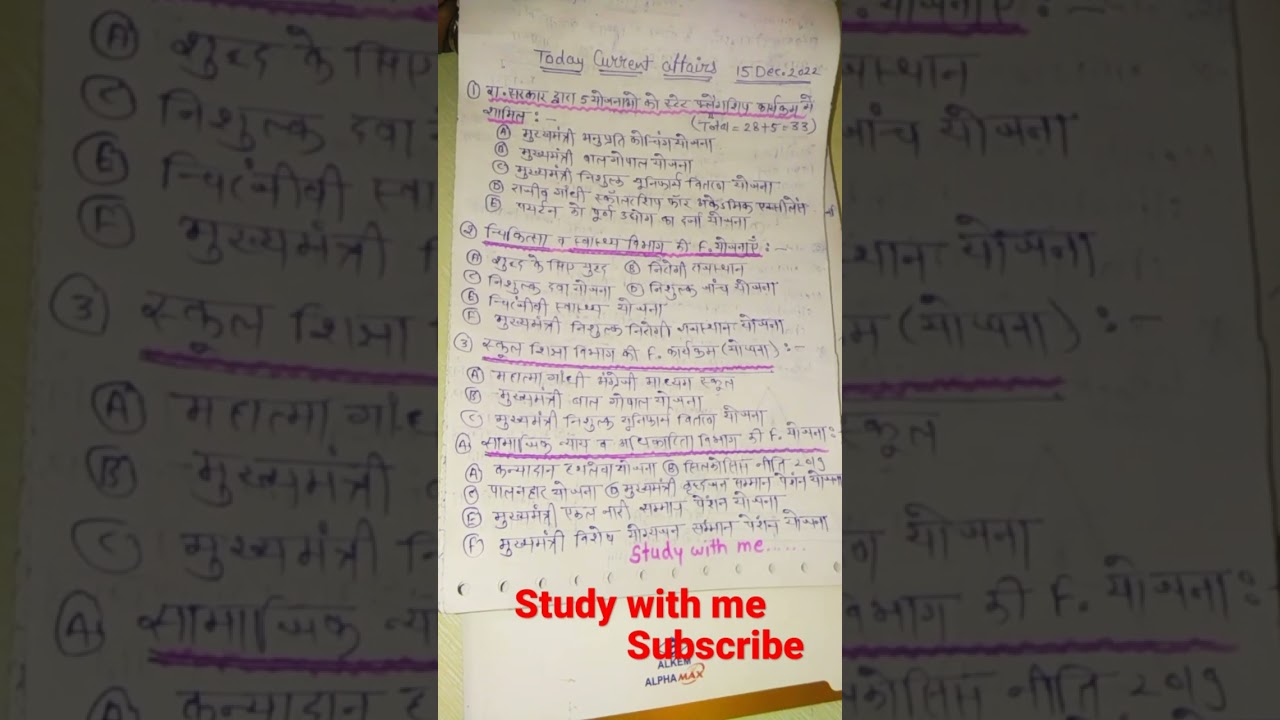 Today Current affairs 15 Dec. 2022
① रा. सरकार द्वारा 5 योजनाओं को स्टेट फ्लैगशिप कार्यक्रम में
शामिल :-
(टोटल = 28+5=33)
Ⓐ मुख्यमंत्री अनुप्रति कोचिंग योजना
Ⓑ मुख्यमंत्री बाल गोपाल योजना
Ⓒ मुख्यमंत्री निशुल्क यूनिफार्म वितरण योजना
Ⓓ राजीव गांधी स्कॉलरशिप फॉर अकेडमिक एक्सीलेंस
Ⓔ पर्यटन को पूर्ण उद्योग का दर्जा योजना
② चिकित्सा व स्वास्थ्य विभाग की F. योजनाएं :-
Ⓐ शुद्ध के लिए युद्ध Ⓑ निरोगी राजस्थान
Ⓒ निशुल्क दवा योजना Ⓓ निशुल्क जांच योजना
Ⓔ चिरंजीवी स्वास्थ्य योजना
Ⓕ मुख्यमंत्री निशुल्क निरोगी राजस्थान योजना
③ स्कूल शिक्षा विभाग की F. कार्यक्रम (योजना) :-
Ⓐ महात्मा गांधी अंग्रेजी माध्यम स्कूल
Ⓑ मुख्यमंत्री बाल गोपाल योजना
Ⓒ मुख्यमंत्री निशुल्क यूनिफार्म वितरण योजना
④ सामाजिक न्याय व अधिकारिता विभाग की F. योजना :
Ⓐ कन्यादान योजना Ⓑ सिलिकोसिस नीति 2019
Ⓒ पालनहार योजना Ⓓ मुख्यमंत्री वृद्धजन सम्मान पेंशन योजना
Ⓔ मुख्यमंत्री एकल नारी सम्मान पेंशन योजना
Ⓕ मुख्यमंत्री विशेष योग्यजन सम्मान पेंशन योजना
Study with me......
Study with me
Subscribe
ALKEM
ALPHAMAX